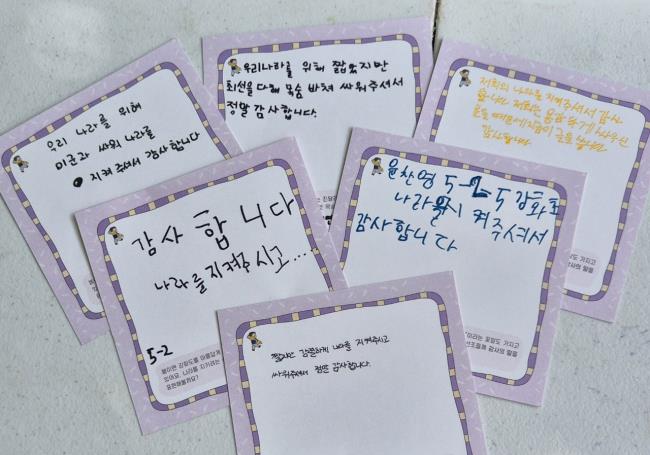 우리 나라를 위해
미군과 싸워 나라를
지켜 주셔서 감사합니다
우리나라를 위해 짧았지만
최선을 다해 목숨 바쳐 싸워주셔서
정말 감사합니다.
저희의 나라를 지켜주셔서 감사
감사합니다
감사합니다
나라를 지켜주시고...
5-2
봄이면 강화도를 아름답게
있어요. 나라를 지키려는
표현해볼까요?
윤찬영 5-2-5 강화도
나라를 지켜주셔서
감사합니다
이라는 꽃말도 가지고
선조들께 감사의 말을
짧지만 강렬하게 나라를 지켜주시고
싸워주셔서 정말 감사합니다.